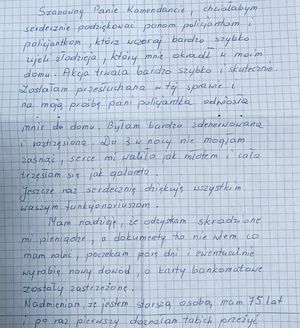 Szanowny Panie Komendancie, chciałabym
serdecznie podziękować panom policjantom i
policjantkom, którz wczoraj bardzo szybko
ujęli złodzieja, który mnie okradł w moim
domu. Akcja trwała bardzo szybko i skutecznie
Zostałam przesłuchana w tej sprawie i
na moją prośbę pani policjantka odwiozła
mnie do domu. Byłam bardzo zdenerwowana
i roztrzęsiona. Do 3 w nocy nie mogłam
zasnąć, serce mi waliło jak młotem i cała
trzęsłam się jak galareta.
Jeszcze raz serdecznie dziękuję wszystkim
waszym funkcjonariuszom.
Mam nadzieję, że odzyskam skradzione
mi pieniądze, a dokumenty to nie wiem co
mam robić, poczekam parę dni i ewentualnie
wyrobię nowy dowód, a karty bankomatowe
zostały zastrzeżone.
Nadmieniam, że jestem starszą osobą, mam 75 lat
i po raz pierwszy doznałam takich przeżyć